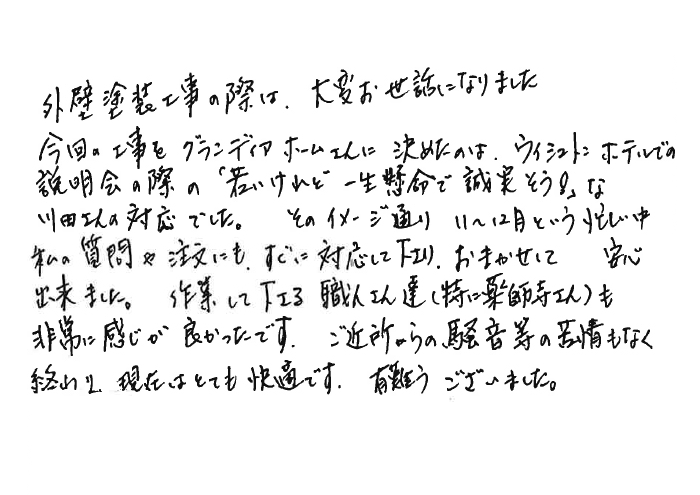 外壁塗装工事の際は、大変お世話になりました
今回の工事をグランディアホームさんに決めたのは、ウィシュトンホテルでの
説明会の際の「若いけれど一生懸命で誠実そう!」な
川田さんの対応でした。 そのイメージ通り 11〜12月という忙しい中
私の質問や注文にも、すぐに対応して下さり、おまかせして 安心
出来ました。 作業して下さる職人さん達(特に薬師寺さん)も
非常に感じが良かったです。 ご近所からの騒音等の苦情もなく
終わり、現在はとても快適です。 有難うございました。